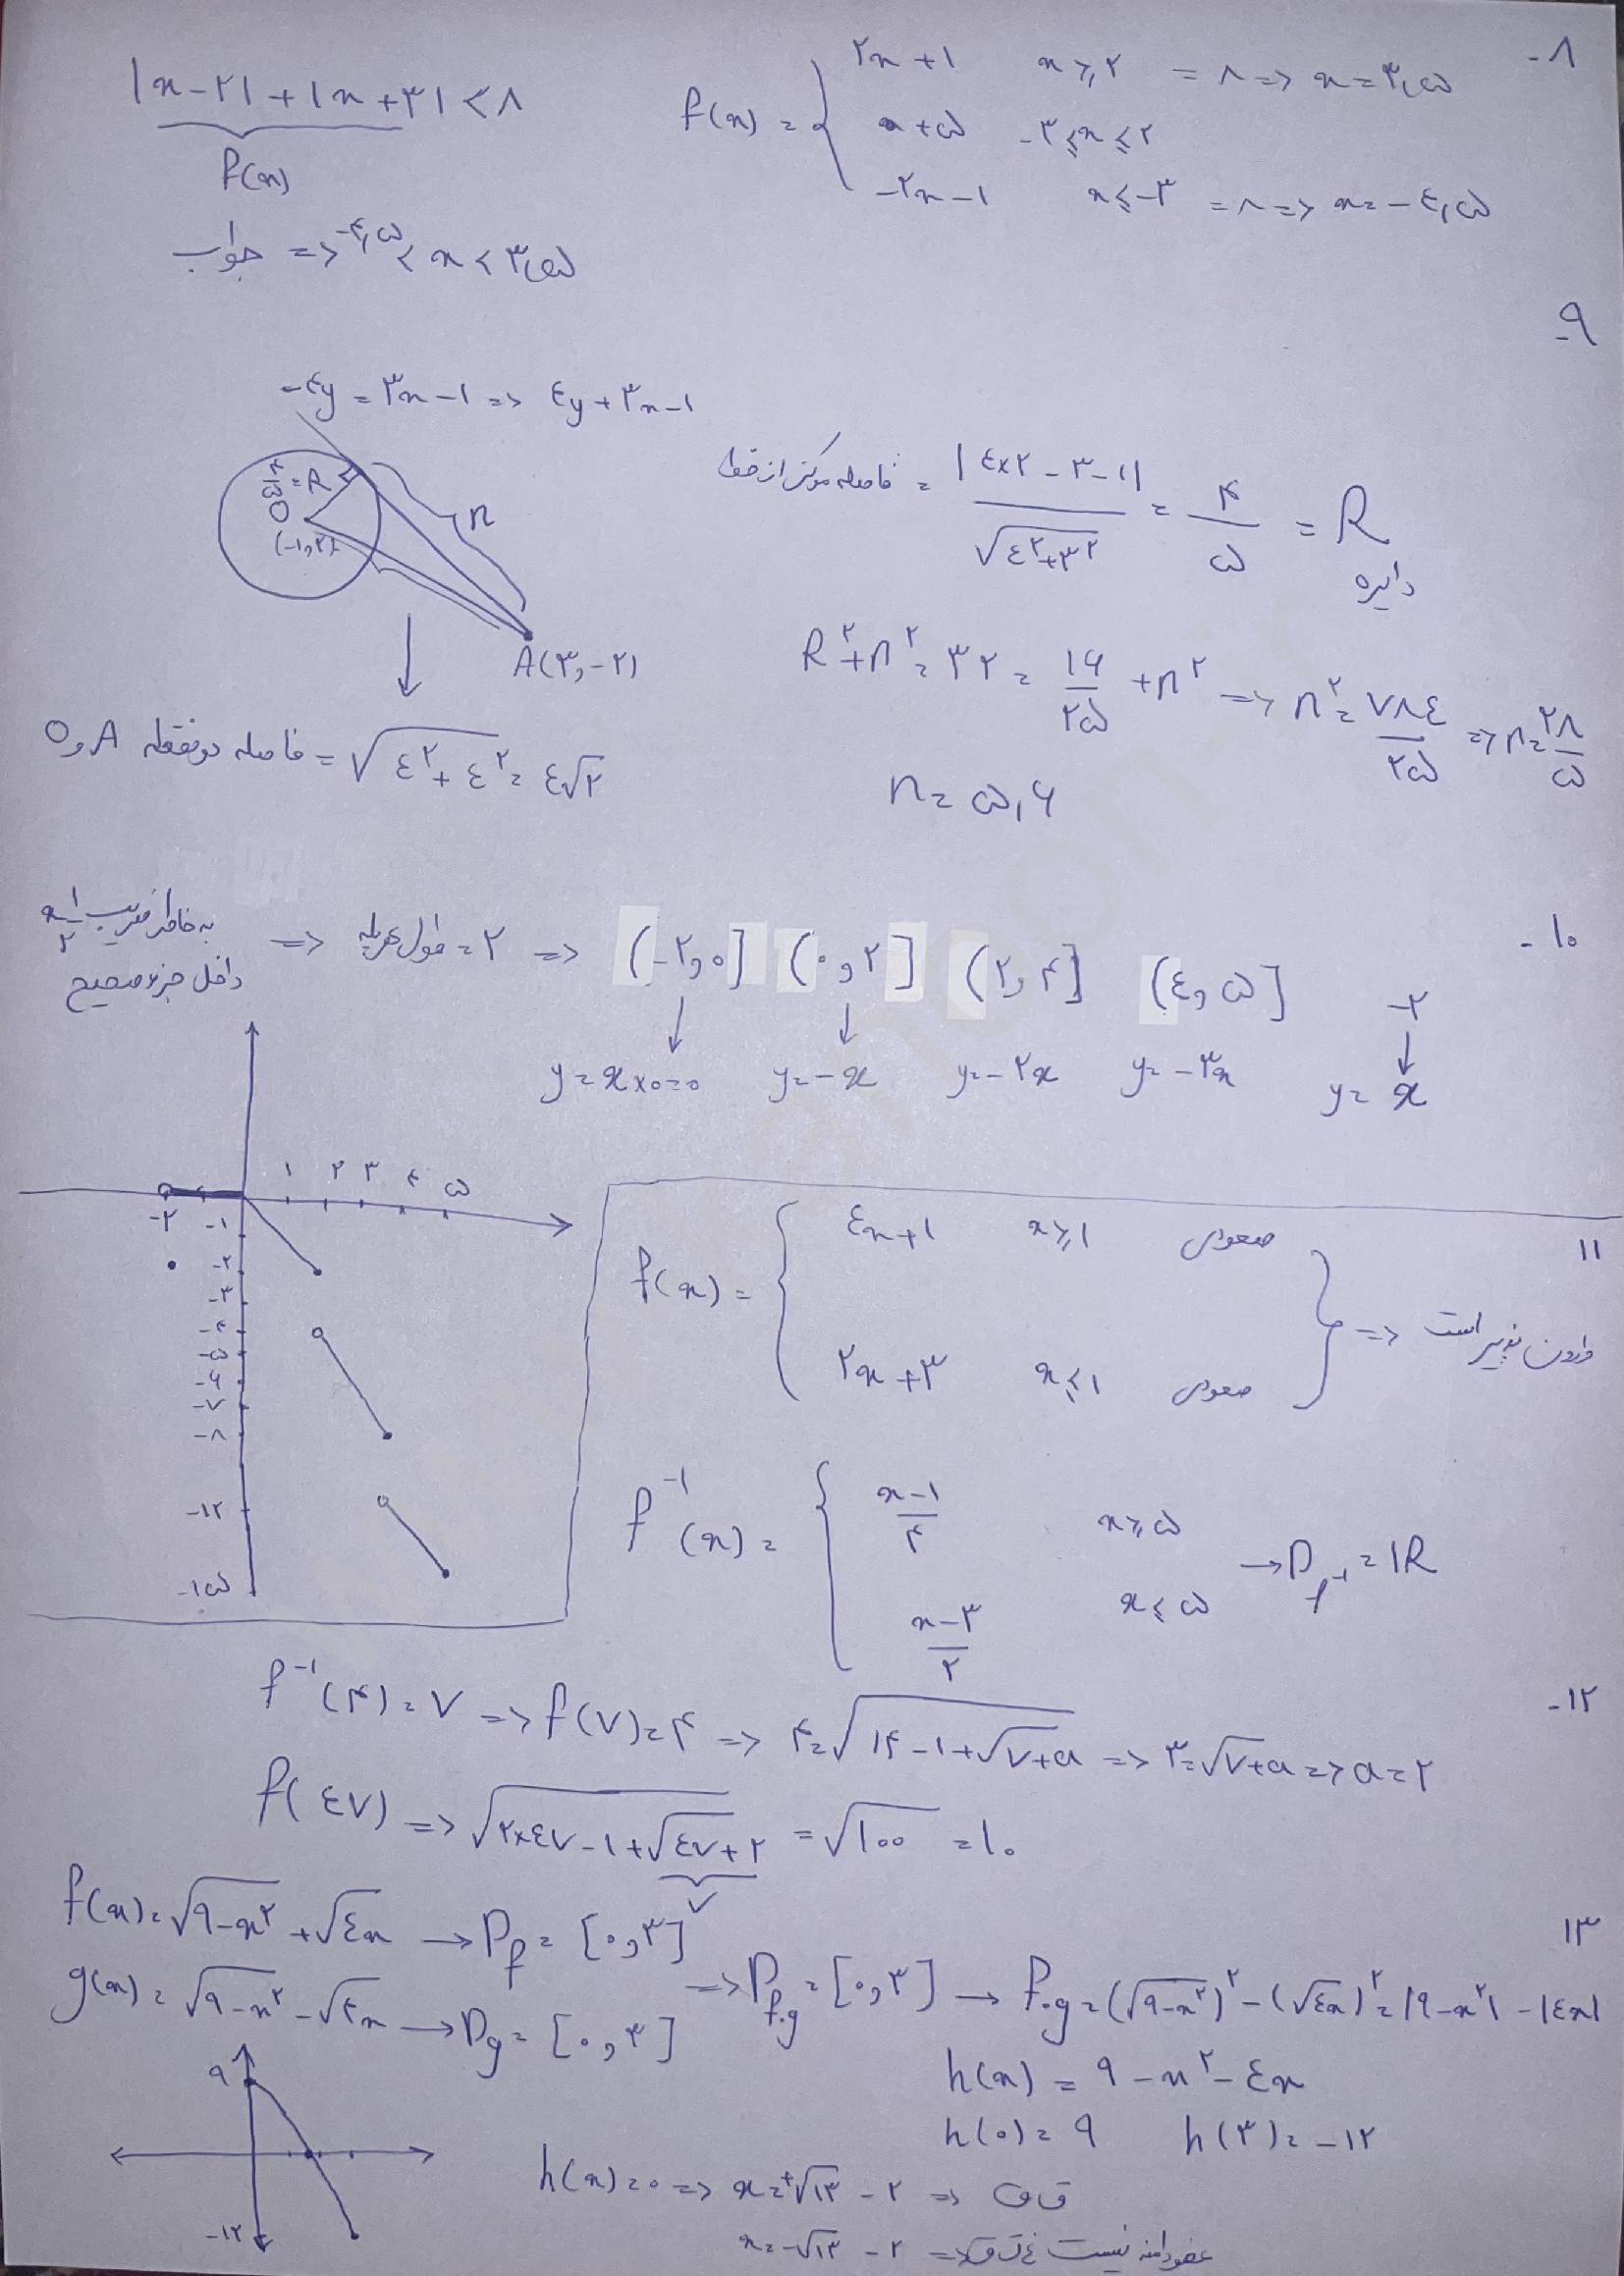 ۸-
|x-۲|+|x+۳|<۸
f(x)
f(x)= { ۲x+۱ x≥۲ =۸ => x=۳,۵
x+۵ -۳≤x≤۲
-۲x-۱ x≤-۳ =۸ => x=-٤,۵
جواب => -۴,۵ < x < ۳,۵
۹-
-۴y=۳x-۱ => ٤y+۳x-۱
فاصله مرکز از خط = |٤×۲-۳-۱| / √(٤^۲+۳^۲) = ۴/۵ = R دایره
۴/۵=R
O
(-۱,۲)
n
A(۳,-۲)
R^۲+n^۲=۳۲=۱۶/۲۵+n^۲ => n^۲=۷۸٤/۲۵ => n=۲۸/۵
فاصله دو نقطه A و O = √(٤^۲+٤^۲) = ٤√۲
n=۵,۶
۱۰-
به خاطر ضریب ۱/۲ x داخل جزء صحیح => طول هر پله = ۲ => (-۲,۰] (۰,۲] (۲,۴] (٤,۵] -۲
y=x×۰=۰ y=-x y=-۲x y=-۳x y=x
۱ ۲ ۳ ۴ ۵
-۲ -۱
-۲
-۳
-۴
-۵
-۶
-۷
-۸
-۱۲
-۱۵
۱۱
f(x)= { ٤x+۱ x≥۱ صعودی
۲x+۳ x≤۱ صعودی } => وارون پذیر است
f^-۱(x)= { (x-۱)/۴ x≥۵
(x-۳)/۲ x≤۵ → D_f^-۱=IR
۱۲-
f^-۱(۴)=۷ => f(۷)=۴ => ۴=√(۱۴-۱+√(۷+a)) => ۳=√(۷+a) => a=۲
f(٤۷) => √(۲×٤۷-۱+√(٤۷+۲)) = √۱۰۰ = ۱۰
۷
۱۳
f(x)=√(۹-x^۲)+√(٤x) → D_f=[۰,۳]
g(x)=√(۹-x^۲)-√(۴x) → D_g=[۰,۳]
=> D_f.g=[۰,۳] → f.g=(√(۹-x^۲))^۲-(√(٤x))^۲=|۹-x^۲|-|٤x|
h(x)=۹-x^۲-٤x
h(۰)=۹ h(۳)=-۱۲
۹
-۱۲
h(x)=۰ => x=+√۱۳-۲ => ق ق
x=-√۱۳-۲ => عضو دامنه نیست غ ق ق